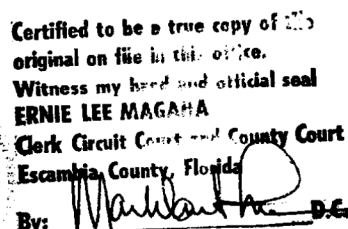 Certified to be a true copy of
original on file in this office.
Witness my hand and official seal
ERNIE LEE MAGAHA
Clerk Circuit Court and County Court
Escambia County, Florida
By: D.C.